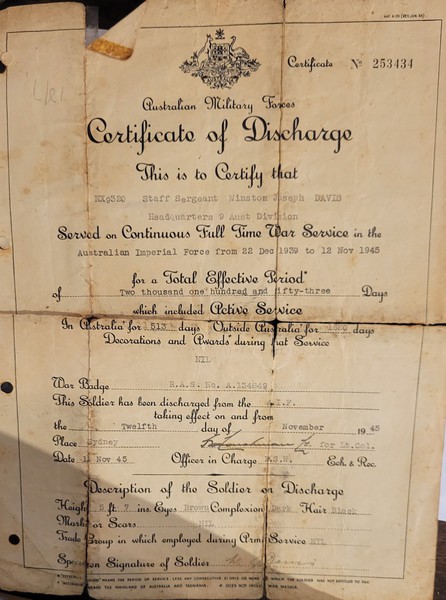 AAF A 20 (REV. JUN. 45)
Certificate No 253434
Australian Military Forces
Certificate of Discharge
This is to Certify that
NX9320 Staff Sergeant Winston Joseph DAVIS
Headquarters 9 Aust Division
Served on Continuous Full Time War Service in the
Australian Imperial Force from 22 Dec 1939 to 12 Nov 1945
for a Total Effective Period*
of Two thousand one hundred and fifty-three Days
which included Active Service
In Australia† for 513 days Outside Australia† for days
Decorations and Awards‡ during that Service
NIL
War Badge R.A.S. No. A.134849
This Soldier has been discharged from the A.I.F.
taking effect on and from
the Twelfth day of November 1945
Place Sydney for Lt.Col.
Date 12 Nov 45 Officer in Charge N.S.W. Ech. & Rec.
Description of the Soldier on Discharge
Height 5 ft 7 ins. Eyes Brown Complexion Dark Hair Black
Marks or Scars NIL
Trade Group in which employed during Army Service NIL
Specimen Signature of Soldier